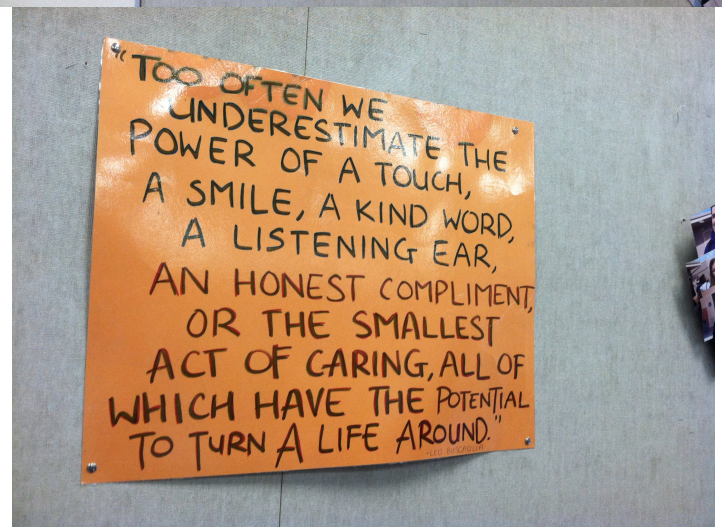 "TOO OFTEN WE
UNDERESTIMATE THE
POWER OF A TOUCH,
A SMILE, A KIND WORD,
A LISTENING EAR,
AN HONEST COMPLIMENT,
OR THE SMALLEST
ACT OF CARING, ALL OF
WHICH HAVE THE POTENTIAL
TO TURN A LIFE AROUND."
-LEO BUSCAGLIA